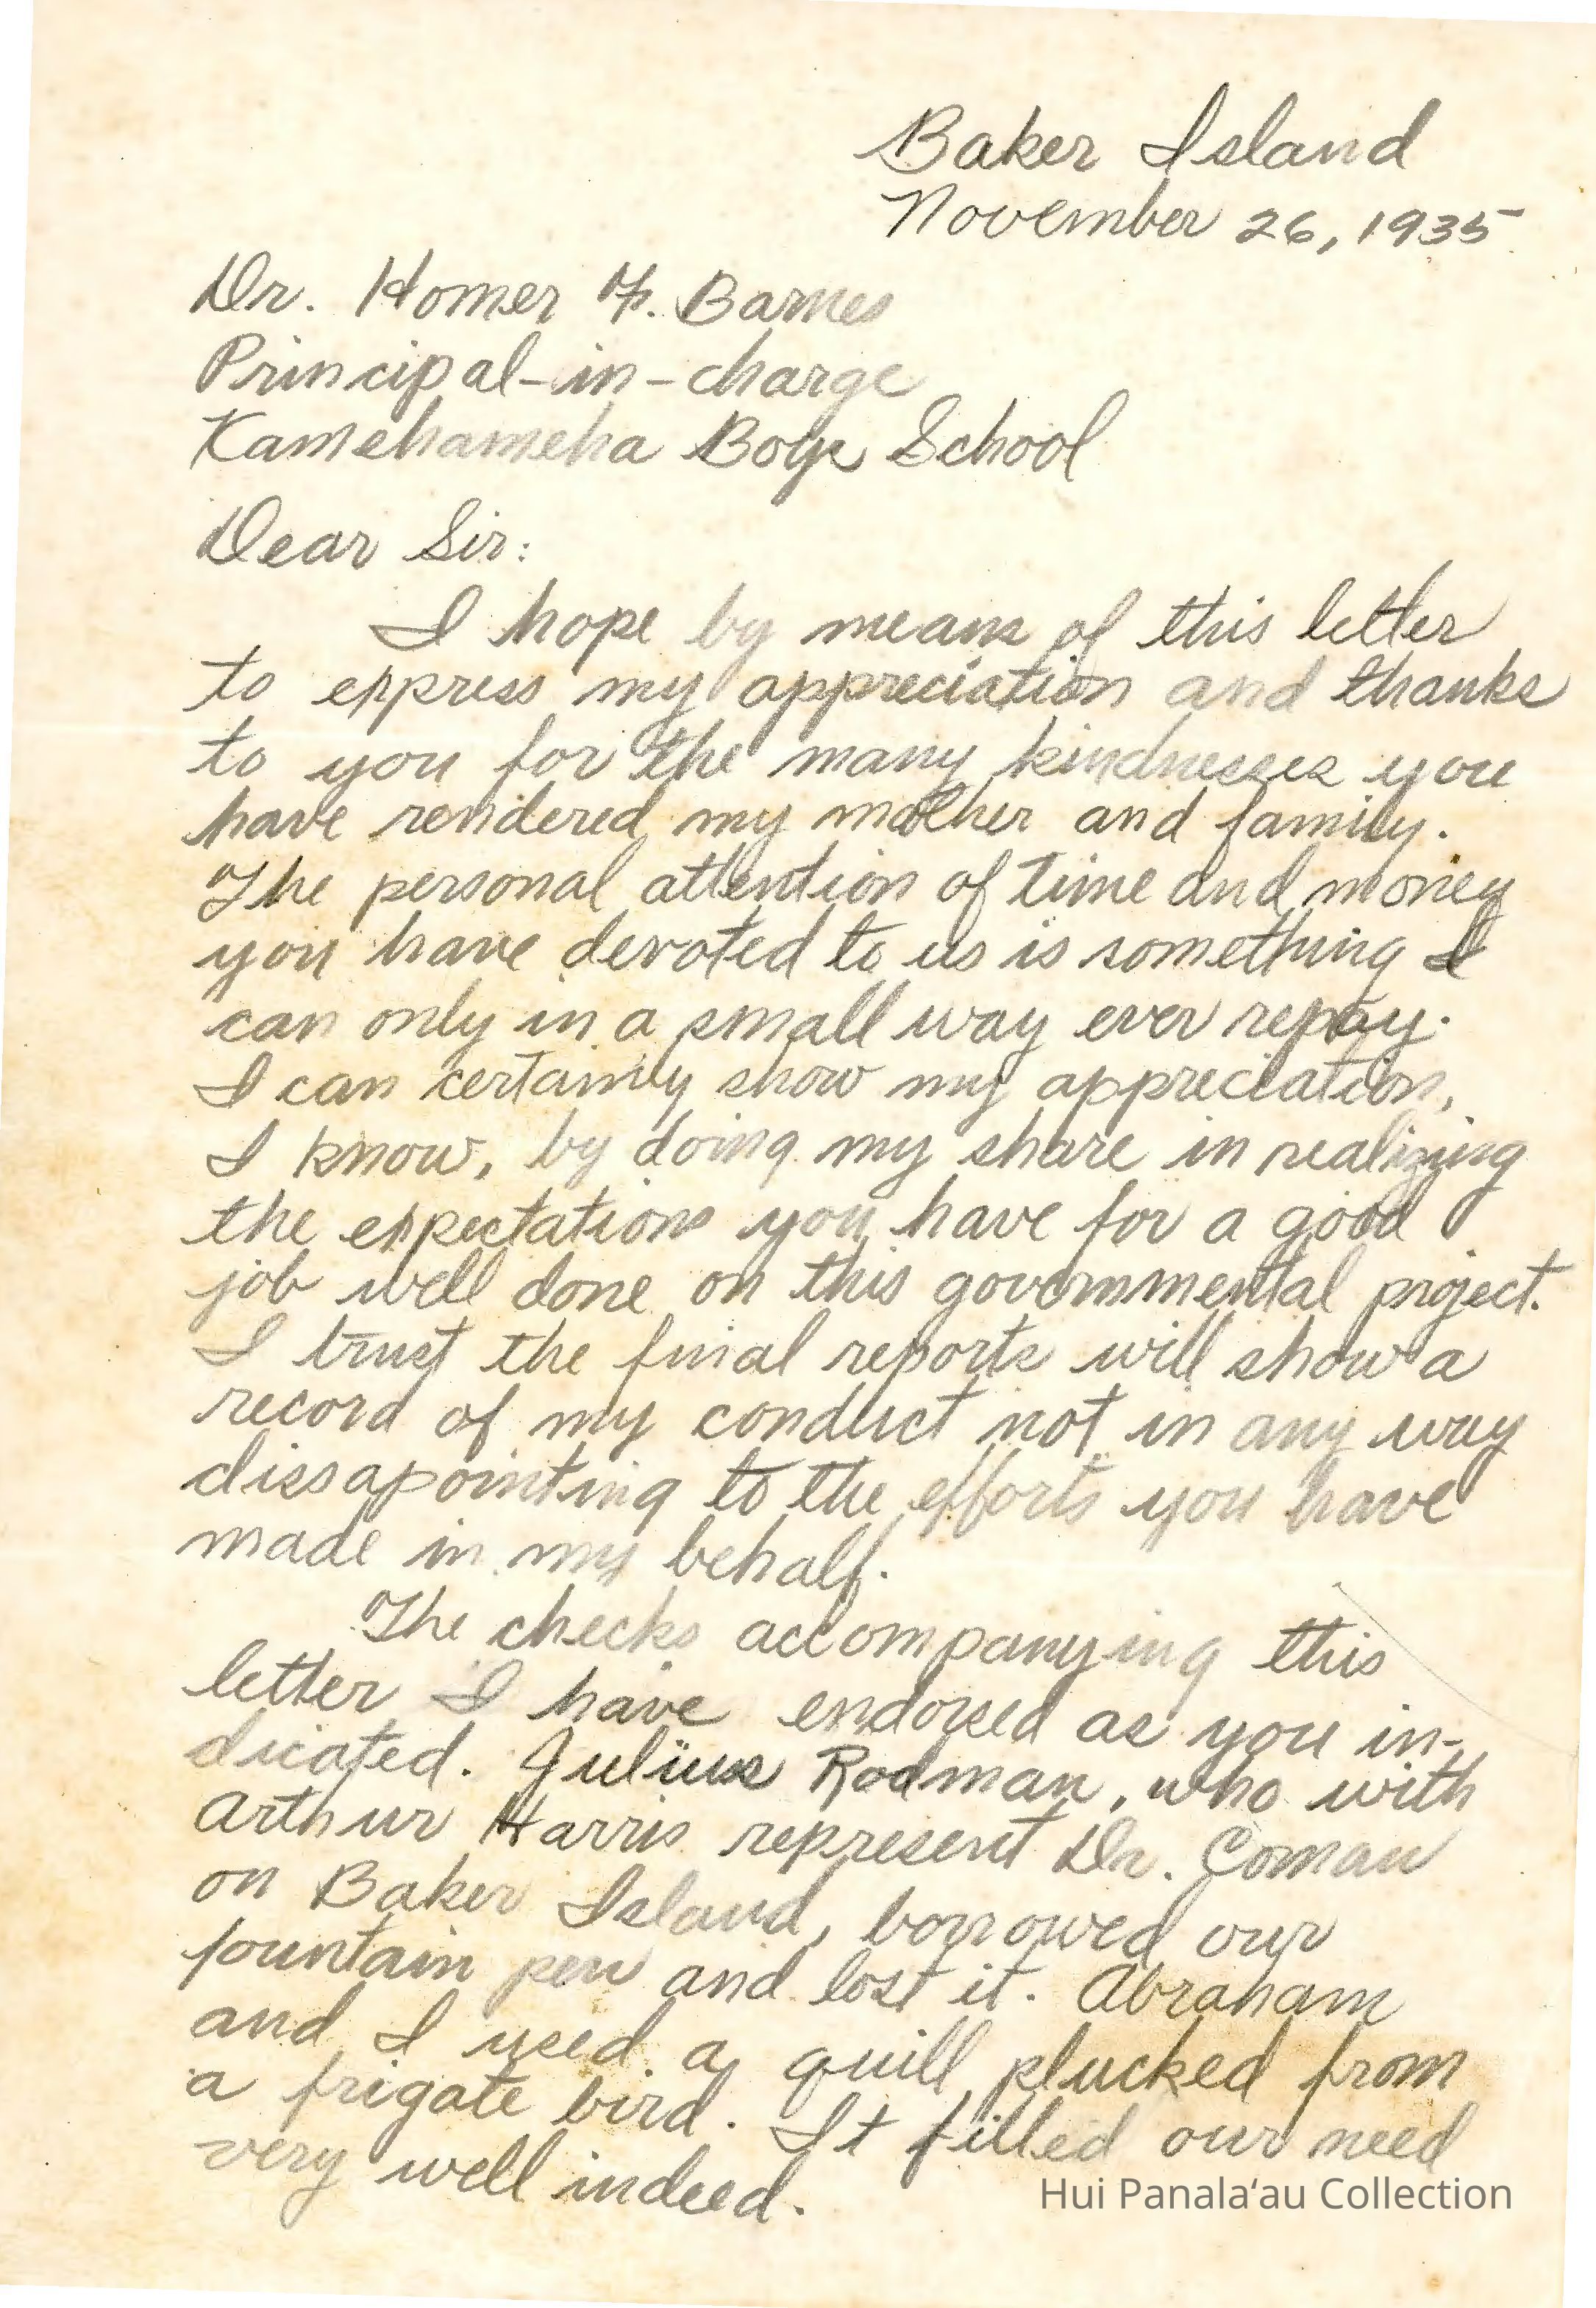 Baker Island
November 26, 1935
Dr. Homer F. Barnes
Principal-in-charge
Kamehameha Boys School
Dear Sir:
I hope by means of this letter
to express my appreciation and thanks
to you for the many kindnesses you
have rendered my mother and family.
The personal attention of time and money
you have devoted to us is something I
can only in a small way ever repay.
I can certainly show my appreciation,
I know, by doing my share in realizing
the expectations you have for a good
job well done on this governmental project.
I trust the final reports will show a
record of my conduct not in any way
dissapointing to the efforts you have
made in my behalf.
The checks accompanying this
letter I have endorsed as you in-
dicated. Julius Rodman, who with
Arthur Harris represent Dr. Coman
on Baker Island, borrowed our
fountain pen and lost it. Abraham
and I used a quill plucked from
a frigate bird. It filled our need
very well indeed.
Hui Panalaʻau Collection